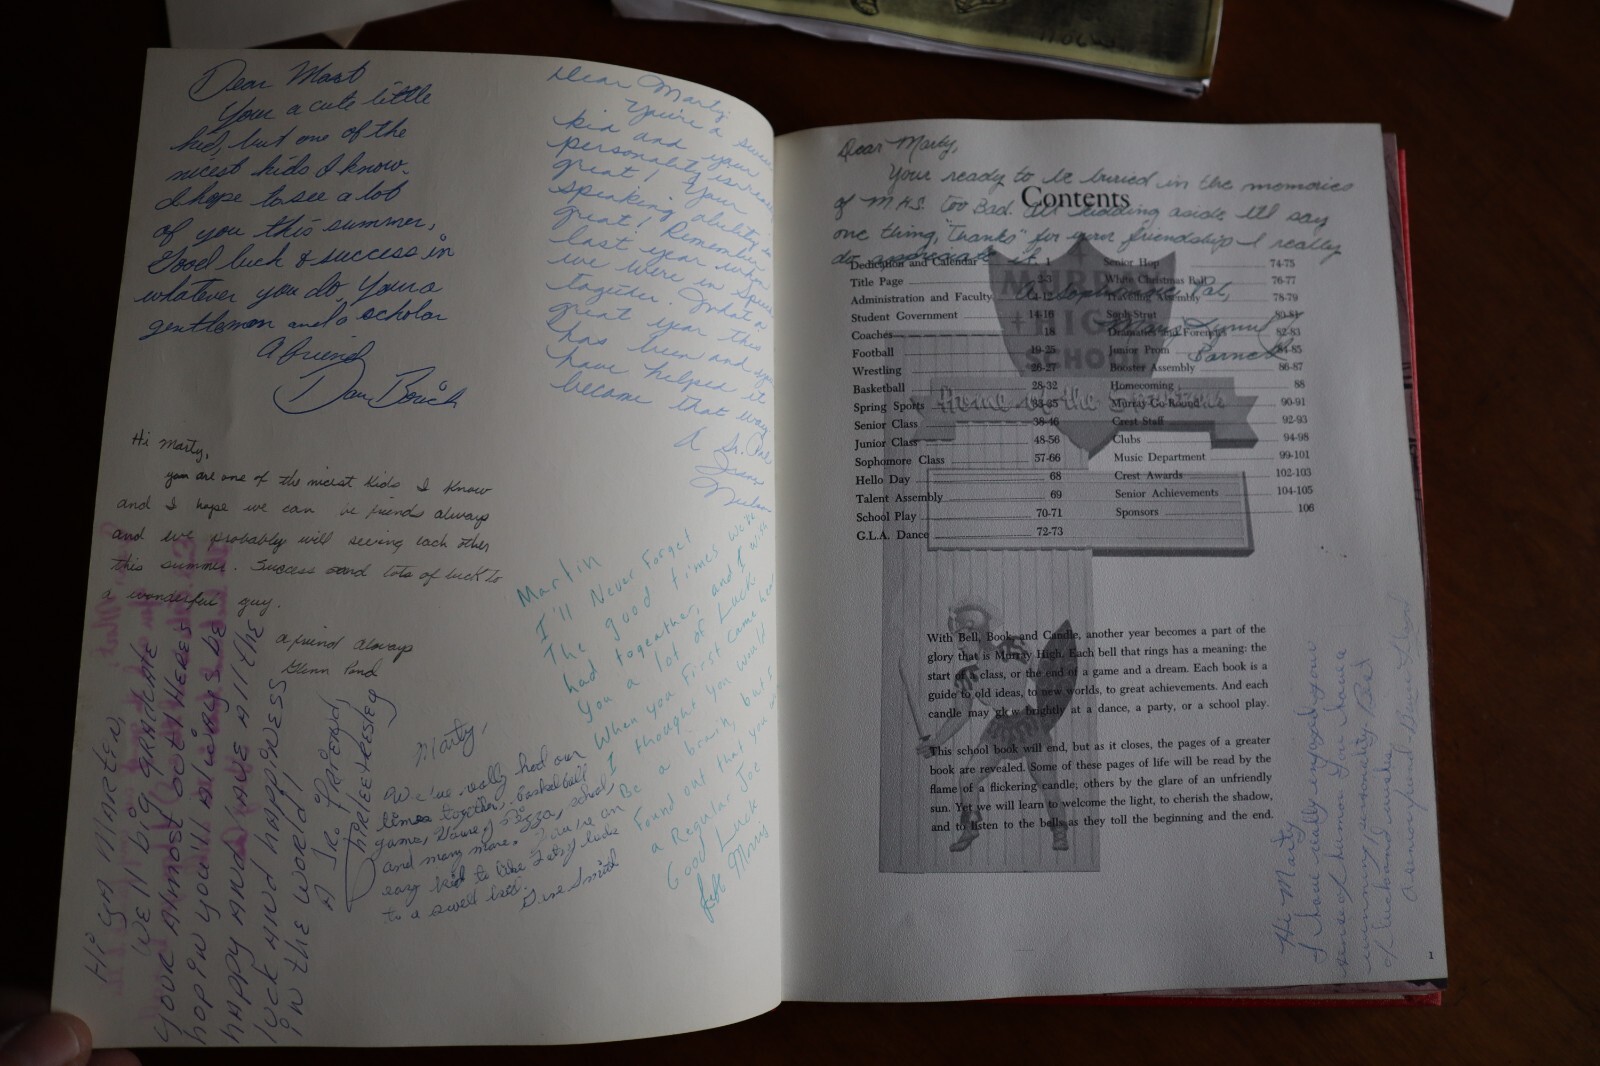 Dear Mart
Your a cute little
kid, but one of the
nicest kids I know.
I hope to see a lot
of you this summer,
Good luck & success in
whatever you do. Your a
gentleman and a scholar
A friend
Dan
Dear Marty,
You're a
kid and your
personality is
great! Your
speaking ability is
great! Remember
last year when
we were in
together. What a
great year this
has been and you
have helped it
become that way
A Sr. Pal
Hi Marty,
you are one of the nicest kids I know
and I hope we can be friends always
and we probably will seeing each other
this summer. Success and lots of luck to
a wonderful guy.
a friend always
Glenn Pond
Hi ya Marten,
We'll big graduate
your almost out! Heres
hopin you'll always be
happy and have all the
luck and happiness
in the world!
A Jr. Friend
Marty,
We've really had our
times together, basketball
games, House of Pizza, school,
and many more. You're an
easy kid to like. Lotsa luck
to a swell kid.
Smith
Martin
I'll Never Forget
The good times we've
had togeather, and I wish
you a lot of Luck
When you First came here
I thought you would
Be a brain, but I
Found out that you
a Regular Joe
Good Luck
Morris
Dear Marty,
Your ready to be buried in the memories
of M.H.S. too Bad. All kidding aside I'll say
one thing, "Thanks" for your friendship I really
do appreciate it.
A Sophomore Pal,
Mary Lynn
Barnes
Contents
MURRAY
HIGH
SCHOOL
Home of the Spartans
Dedication and Calendar 1
Title Page 2-3
Administration and Faculty
Student Government 14-16
Coaches 18
Football 19-25
Wrestling 26-27
Basketball 28-32
Spring Sports 33-35
Senior Class 38-46
Junior Class 48-56
Sophomore Class 57-66
Hello Day 68
Talent Assembly 69
School Play 70-71
G.L.A. Dance 72-73
Senior Hop 74-75
White Christmas Ball 76-77
Traveling Assembly 78-79
Soph Strut 80-81
Dramatics and Forensics 82-83
Junior Prom 84-85
Booster Assembly 86-87
Homecoming 88
Murray-Go-Round 90-91
Crest Staff 92-93
Clubs 94-98
Music Department 99-101
Crest Awards 102-103
Senior Achievements 104-105
Sponsors 106
With Bell, Book and Candle, another year becomes a part of the
glory that is Murray High. Each bell that rings has a meaning: the
start of a class, or the end of a game and a dream. Each book is a
guide to old ideas, to new worlds, to great achievements. And each
candle may glow brightly at a dance, a party, or a school play.
This school book will end, but as it closes, the pages of a greater
book are revealed. Some of these pages of life will be read by the
flame of a flickering candle, others by the glare of an unfriendly
sun. Yet we will learn to welcome the light, to cherish the shadow,
and to listen to the bells as they toll the beginning and the end.
Hi Marty
I have really enjoyed your
sense of humor. You have a
winning personality. Best
of luck and wishes,
a senior friend
1